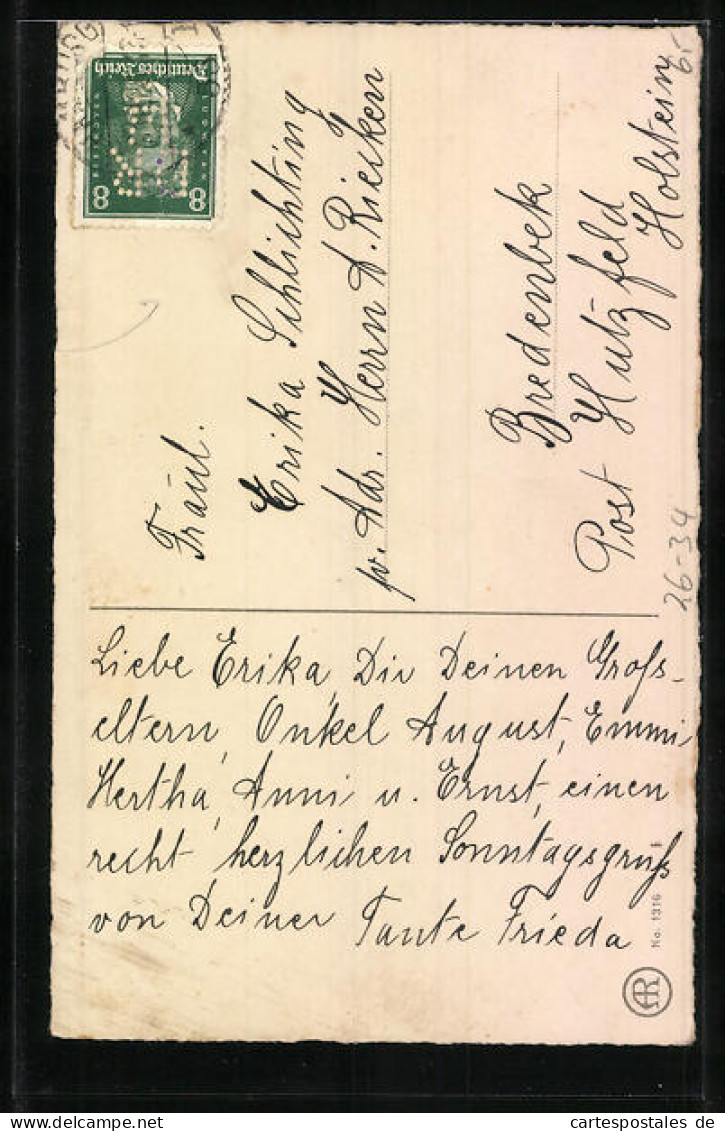 Deutsches Reich
8 8
Fräul.
Erika Schlichting
pr. Adr. Herrn A. Riecken
Bredenbek
Post Hutzfeld
Holstein
6,-
26-34
Liebe Erika, Dir Deinen Gross-
eltern, Onkel August, Emmi
Hertha, Anni u. Ernst, einen
recht herzlichen Sonntagsgruß
von Deiner Tante Frieda
No. 1316
AR
cartespostales.de